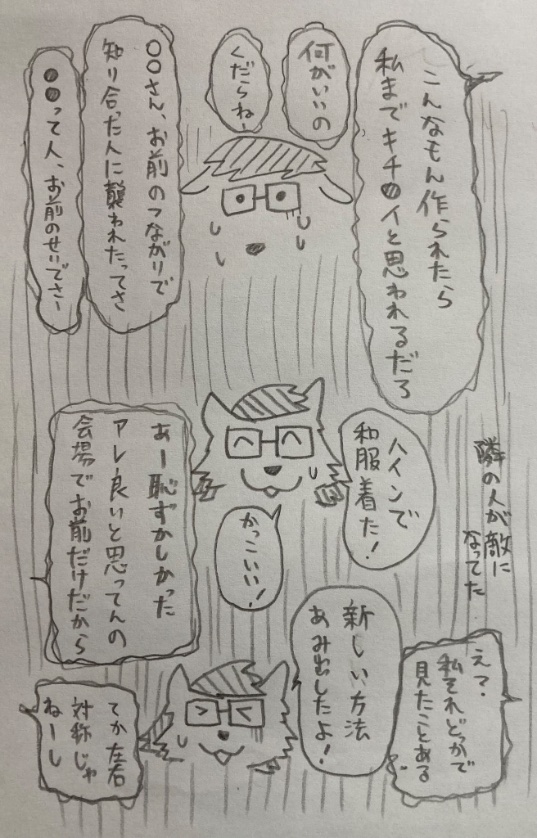 こんなもん作られたら
私までキチ〇イと思われるだろ
何がいいの
くだらねー
〇〇さん、お前のつながりで
知り合った人に襲われたってさ
●●って人、お前のせいでさー
隣の人が敵に
なってた
ハインで
和服着た！
かっこいい！
あー恥ずかしかった
アレ良いと思ってんの
会場でお前だけだから
え？
私それどっかで
見たことある
新しい方法
あみ出したよ！
てか左右
対称じゃ
ねーし